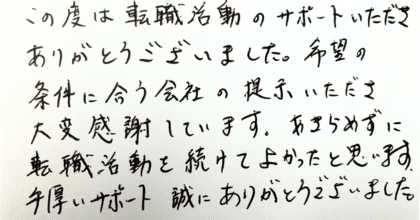 この度は転職活動のサポートいただき
ありがとうございました。希望の
条件に合う会社の提示いただき
大変感謝しています。あきらめずに
転職活動を続けてよかったと思います
手厚いサポート 誠にありがとうございました